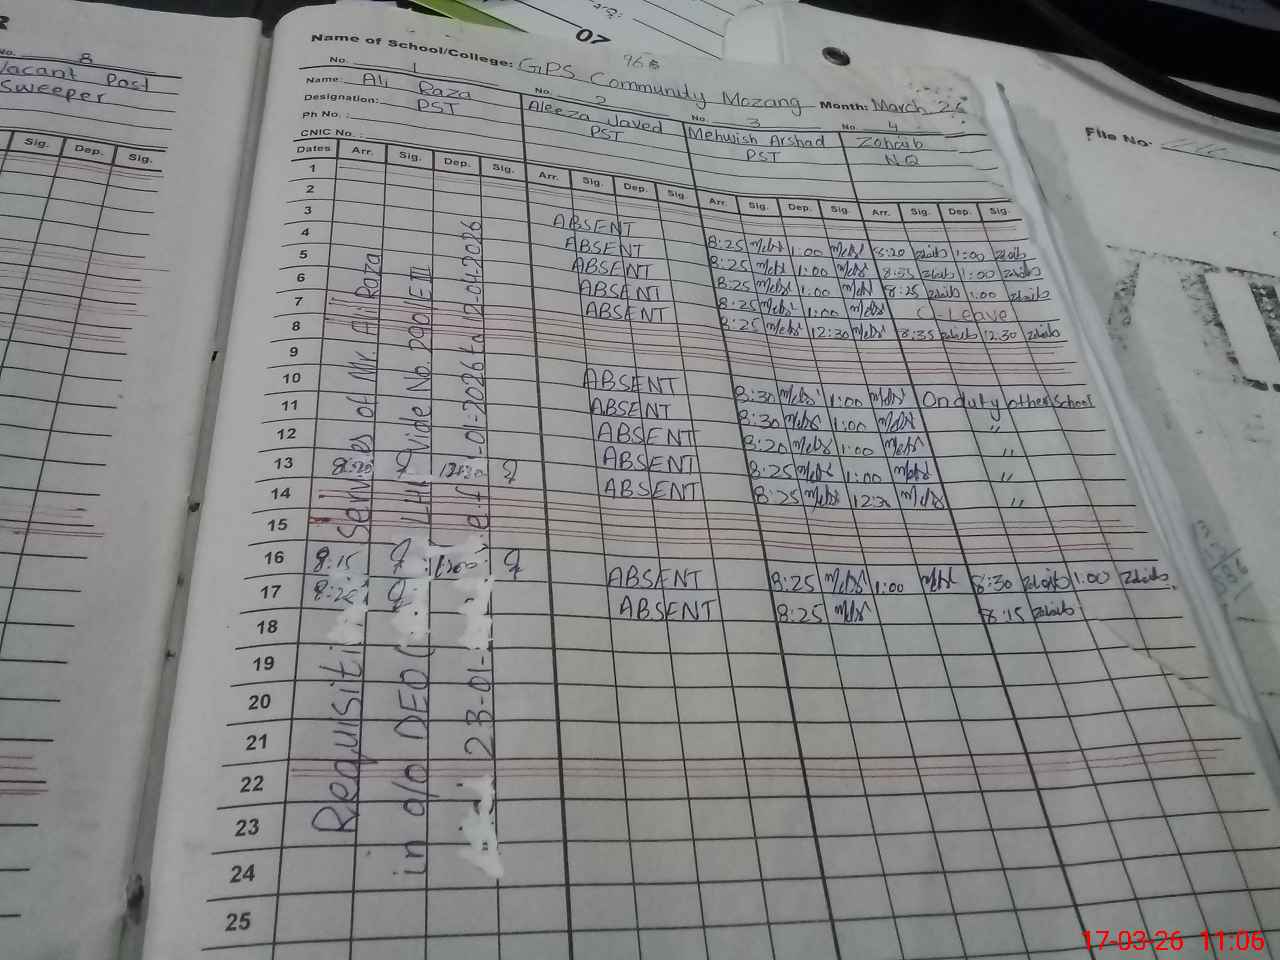 No. 8
Vacant Post
Sweeper
Sig. Dep. Sig.
07
968
Name of School/College: GPS Community Mozang Month: March 26
No. 1 No. 2 No. 3 No. 4
Name: Ali Raza Aleeza Javed Mehwish Arshad Zohaib
Designation: PST PST PST N.Q
Ph No. :
CNIC No. :
Dates Arr. Sig. Dep. Sig. Arr. Sig. Dep. Sig. Arr. Sig. Dep. Sig. Arr. Sig. Dep. Sig.
1
2
3 ABSENT 8:25 1:00 8:20 1:00
4 ABSENT 8:25 1:00 8:35 1:00
5 ABSENT 8:25 1:00 8:25 1:00
6 ABSENT 8:25 1:00 C-Leave
7 ABSENT 8:25 12:30 8:35 12:30
8
9
10 ABSENT 8:30 1:00 On duty other School
11 ABSENT 8:30 1:00 "
12 ABSENT 8:20 1:00 "
13 8:20 12:30 ABSENT 8:25 1:00 "
14 ABSENT 8:25 12:30 "
15
16 8:15 1:00 ABSENT 8:25 1:00 8:30 1:00
17 ABSENT 8:25 8:15
18
19
20
21
22
23
24
25
Services of Mr. Ali Raza
Requisiti
Vide No 290/ETI
in o/o DEO (
-01-2026 to 12-04-2026
23-01-
File No.
17-03-26 11:06